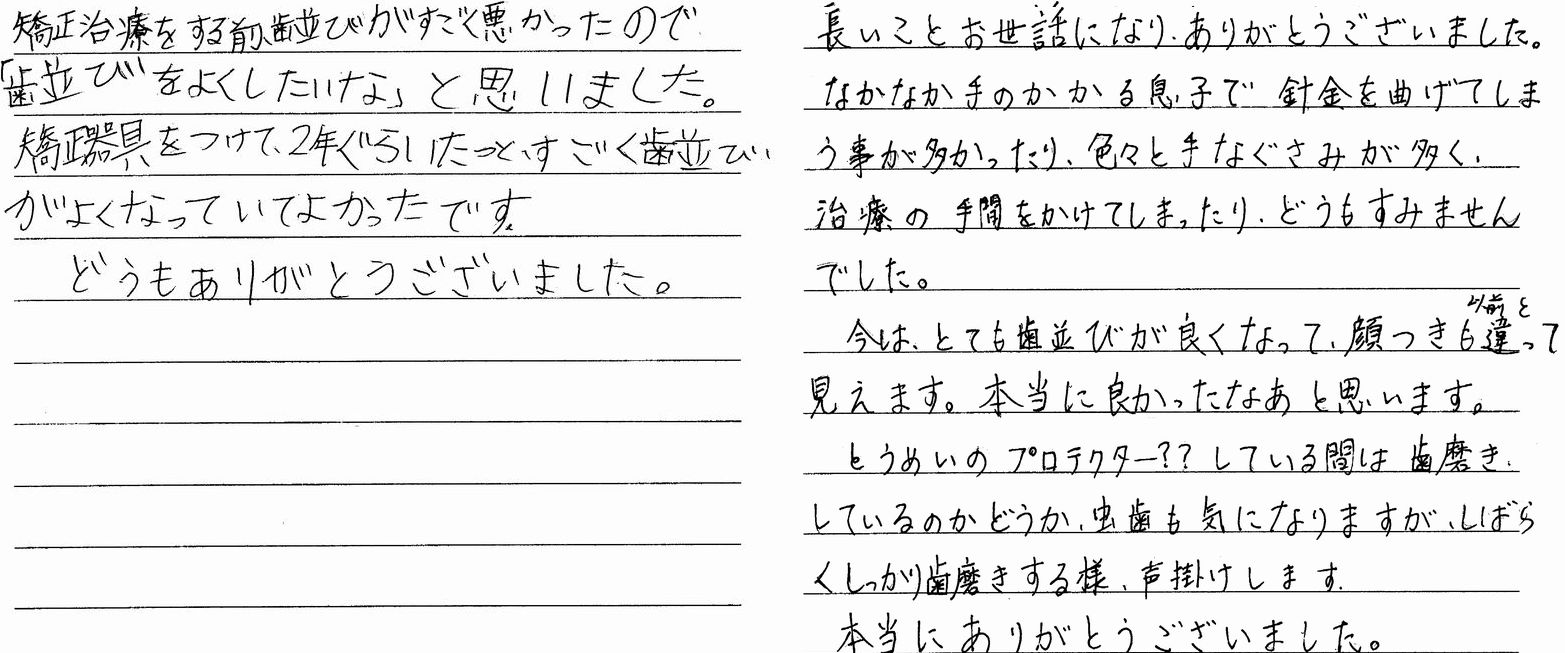 矯正治療をする前、歯並びがすごく悪かったので
「歯並びをよくしたいな」と思いました。
矯正器具をつけて、2年ぐらいたつと、すごく歯並び
がよくなっていてよかったです。
どうもありがとうございました。
長いことお世話になり、ありがとうございました。
なかなか手のかかる息子で 針金を曲げてしま
う事が多かったり、色々と手なぐさみが多く、
治療の手間をかけてしまったり、どうもすみません
でした。
今は、とても歯並びが良くなって、顔つきも以前と違って
見えます。本当に良かったなあと思います。
とうめいのプロテクター??している間は歯磨き
しているのかどうか、虫歯も気になりますが、しばら
くしっかり歯磨きする様、声掛けします。
本当にありがとうございました。